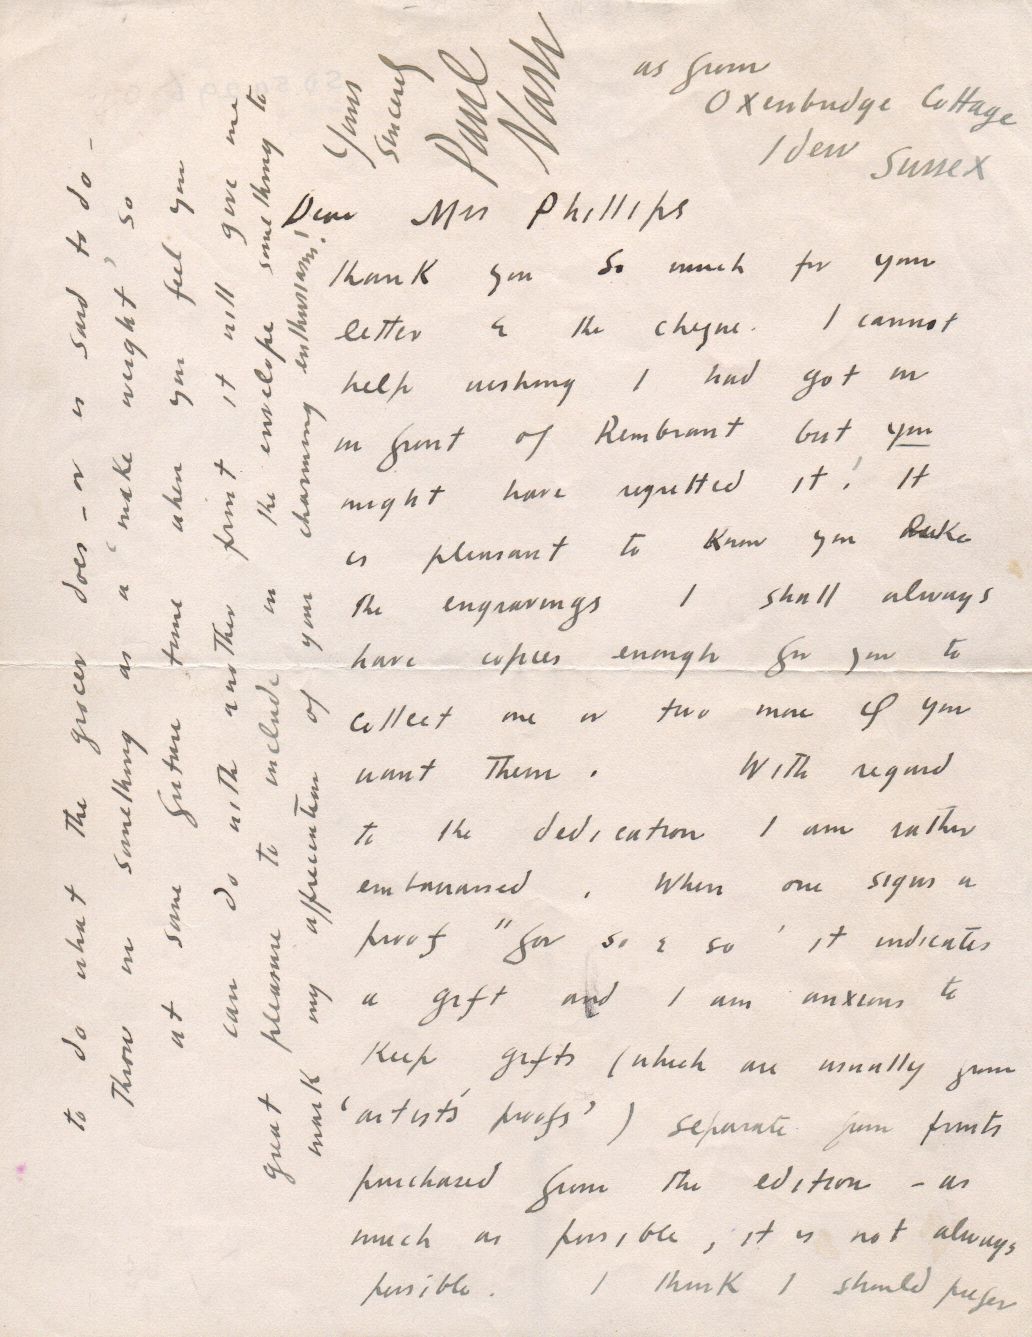 as from
Oxenbridge Cottage
Iden Sussex
Dear Mrs Phillips
Thank you so much for your
letter & the cheque. I cannot
help wishing I had got in
in front of Rembrant but you
might have regretted it! It
is pleasant to know you like
the engravings I shall always
have copies enough for you to
collect one or two more if you
want them. With regard
to the dedication I am rather
embarrassed. When one signs a
proof "for so & so' it indicates
a gift and I am anxious to
keep gifts (which are usually from
'artist's proofs') separate from prints
purchased from the edition - as
much as possible, it is not always
possible. I think I should prefer
to do what the grocer does - or is said to do -
throw in something as a 'make weight', so
at some future time when you feel you
can do with another print it will give me
great pleasure to include in the envelope something to
mark my appreciation of your charming enthusiasm!
Yours
sincerely
Paul
Nash